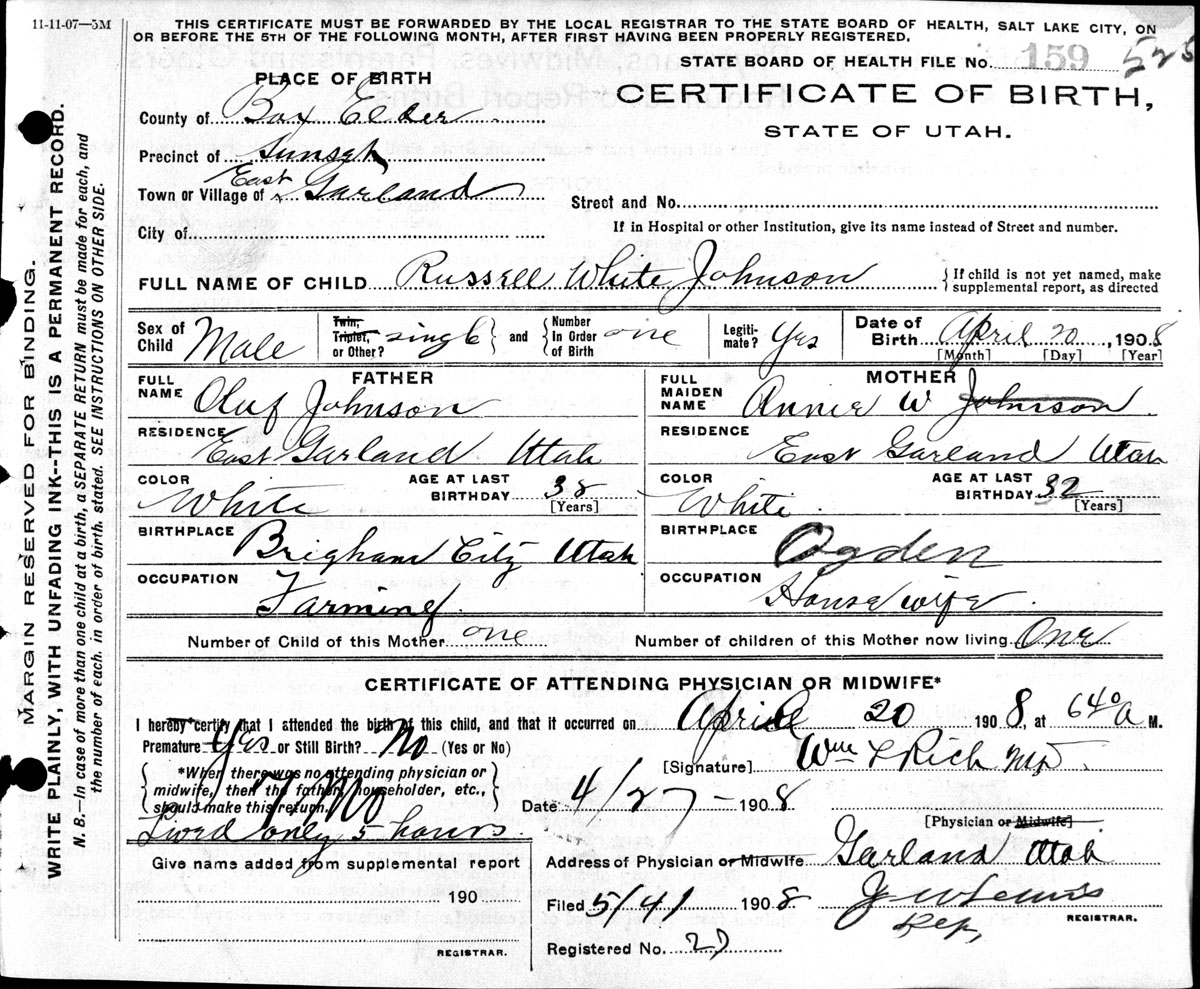 11-11-07—5M
THIS CERTIFICATE MUST BE FORWARDED BY THE LOCAL REGISTRAR TO THE STATE BOARD OF HEALTH, SALT LAKE CITY, ON
OR BEFORE THE 5TH OF THE FOLLOWING MONTH, AFTER FIRST HAVING BEEN PROPERLY REGISTERED.
STATE BOARD OF HEALTH FILE No. 159 525
PLACE OF BIRTH
CERTIFICATE OF BIRTH,
STATE OF UTAH.
County of Box Elder
Precinct of Sunset
Town or Village of East Garland
Street and No.
City of
If in Hospital or other Institution, give its name instead of Street and number.
FULL NAME OF CHILD Russell White Johnson { If child is not yet named, make
supplemental report, as directed
Sex of Child Male
Twin, Triplet, or Other? single } and { Number In Order of Birth one
Legiti-mate? Yes
Date of Birth April 20, 1908
[Month] [Day] [Year]
FATHER
FULL NAME Oluf Johnson
RESIDENCE East Garland Utah
COLOR White AGE AT LAST BIRTHDAY 38 [Years]
BIRTHPLACE Brigham City Utah
OCCUPATION Farming
MOTHER
FULL MAIDEN NAME Annie W Johnson
RESIDENCE East Garland Utah
COLOR White AGE AT LAST BIRTHDAY 32 [Years]
BIRTHPLACE Ogden
OCCUPATION House wife
Number of Child of this Mother one Number of children of this Mother now living One
CERTIFICATE OF ATTENDING PHYSICIAN OR MIDWIFE*
I hereby certify that I attended the birth of this child, and that it occurred on April 20 1908, at 640 a M.
Premature Yes or Still Birth? No (Yes or No)
[Signature] Wm L Rich MD
{ *When there was no attending physician or
midwife, then the father, householder, etc.,
should make this return. }
Date 4/27 — 1908
Lived only 5 hours
[Physician or Midwife]
Give name added from supplemental report
190
REGISTRAR.
Address of Physician or Midwife Garland Utah
Filed 5/4/ 1908 J W Lewis
Dep, REGISTRAR.
Registered No. 27
MARGIN RESERVED FOR BINDING.
WRITE PLAINLY, WITH UNFADING INK--THIS IS A PERMANENT RECORD.
N. B.—In case of more than one child at a birth, a SEPARATE RETURN must be made for each, and
the number of each, in order of birth, stated. SEE INSTRUCTIONS ON OTHER SIDE.